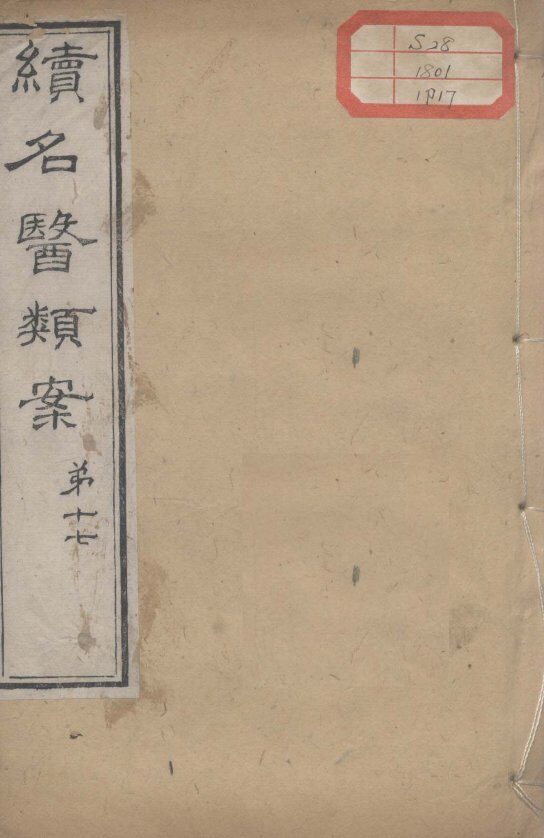 續名醫類案
弟十七
S28
1801
1P17